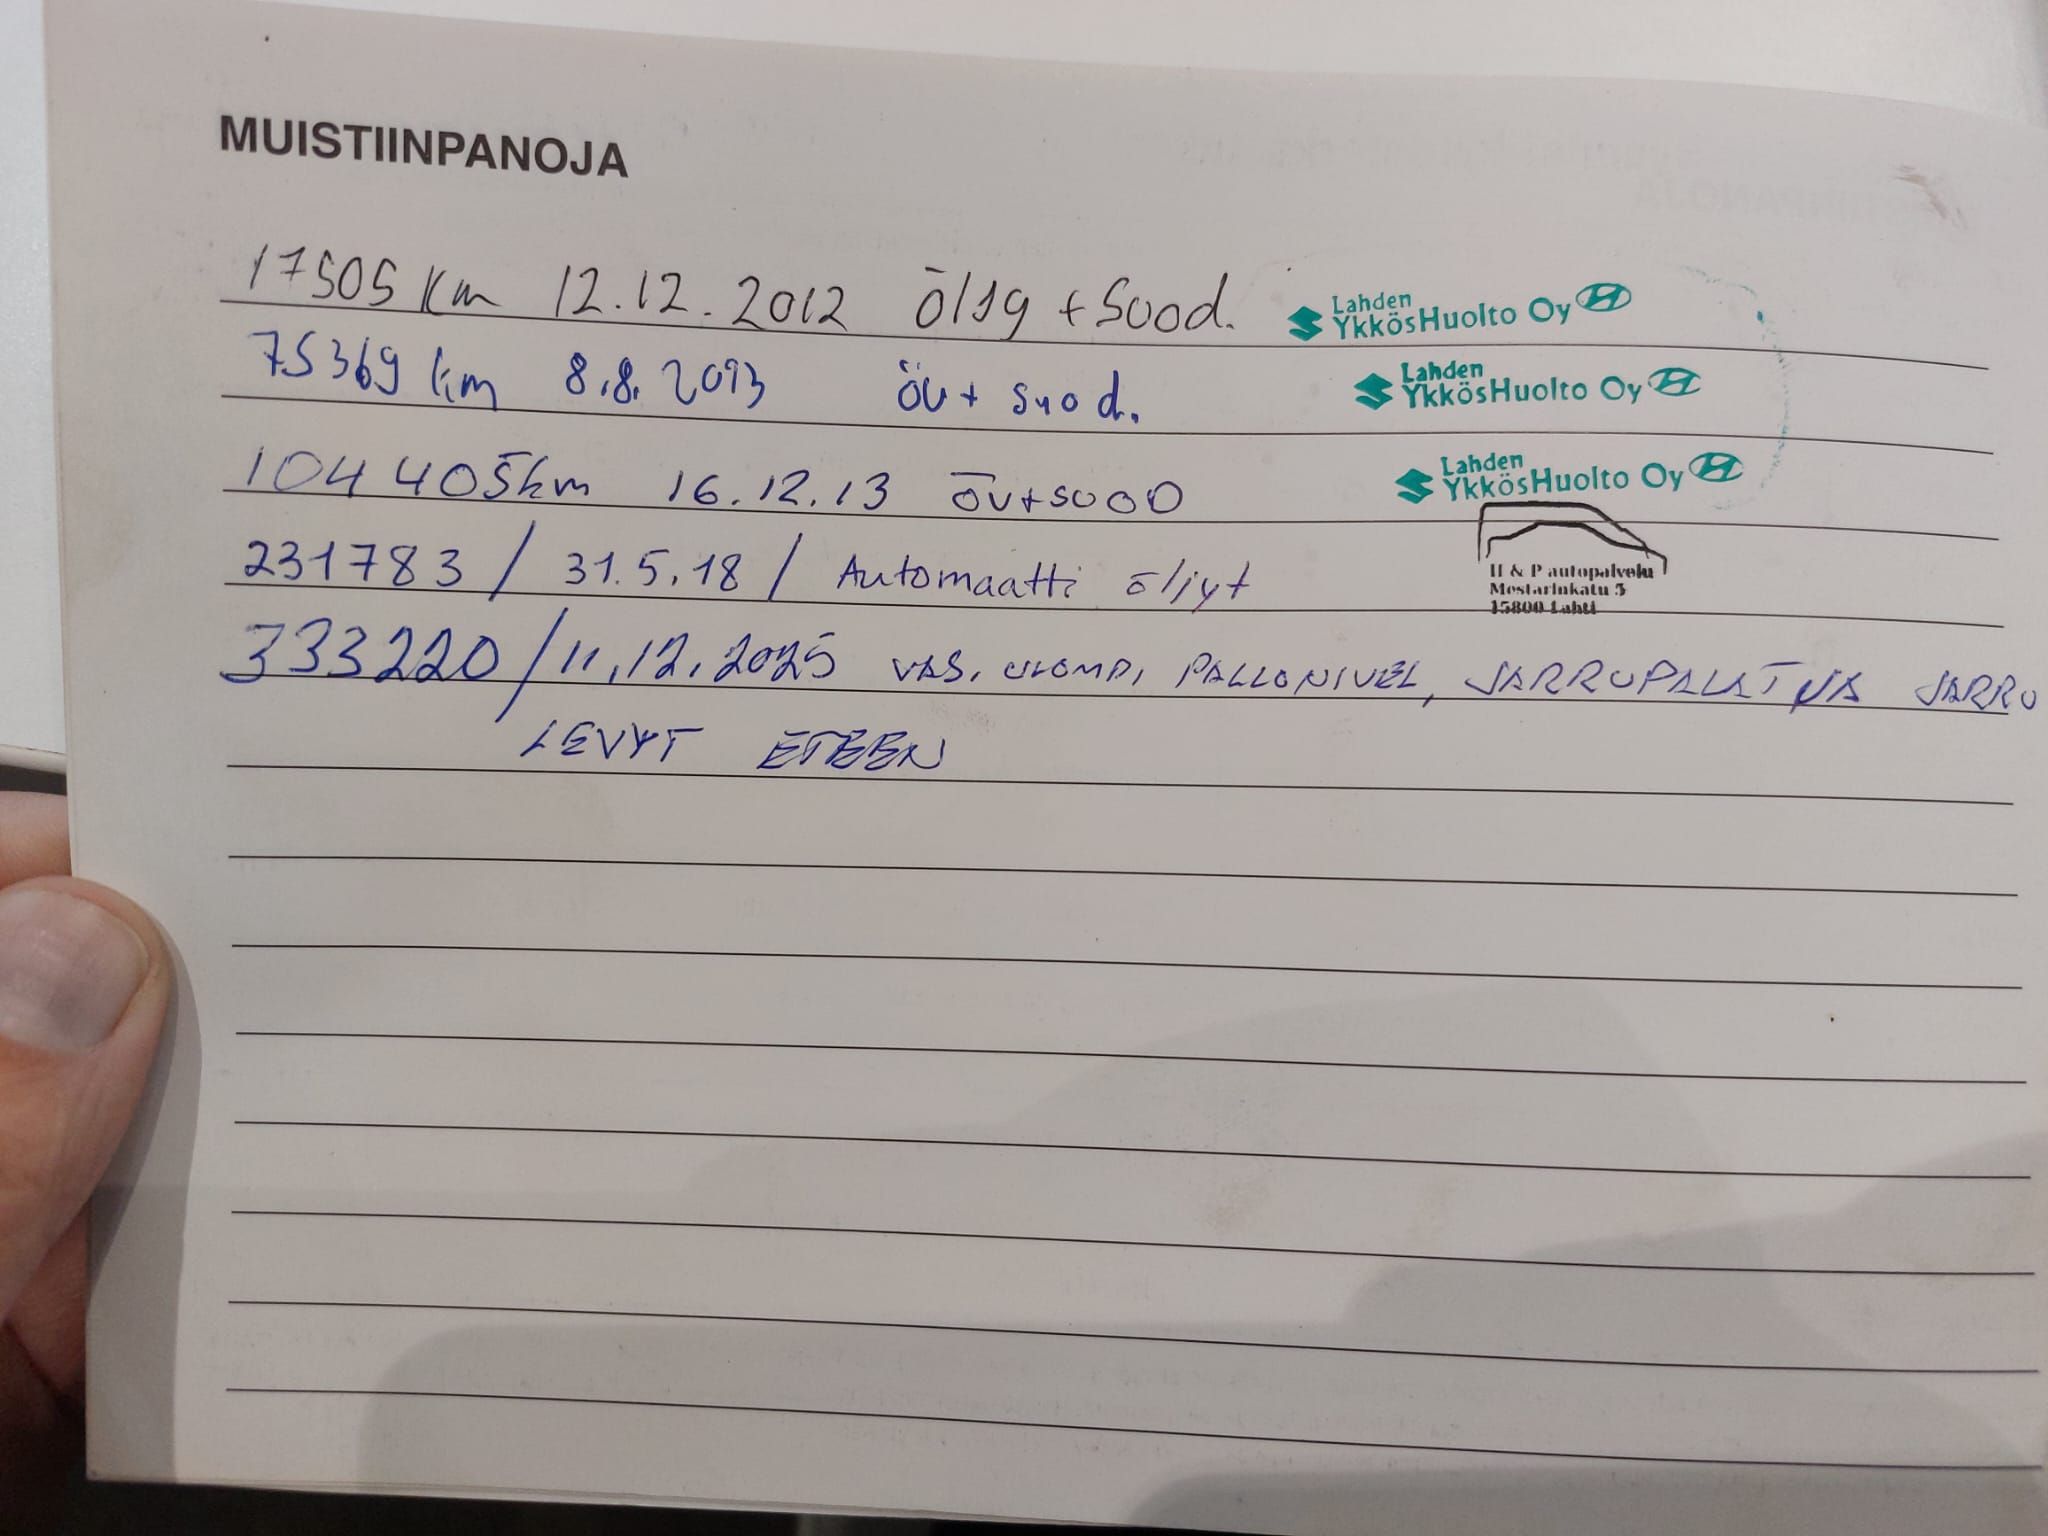 MUISTIINPANOJA
17505 km 12.12.2012 öljy + Suod. Lahden YkkösHuolto Oy
75369 km 8.8.2013 öv + suod. Lahden YkkösHuolto Oy
104405km 16.12.13 öv+suod Lahden YkkösHuolto Oy
231783 / 31.5.18 / Automaatti öljyt
H & P autopalvelu
Mestarinkatu 5
15800 Lahti
333220 / 11.12.2025 VAS. ULOMPI PALLONIVEL, JARRUPALAT JA JARRU
LEVYT ETEEN